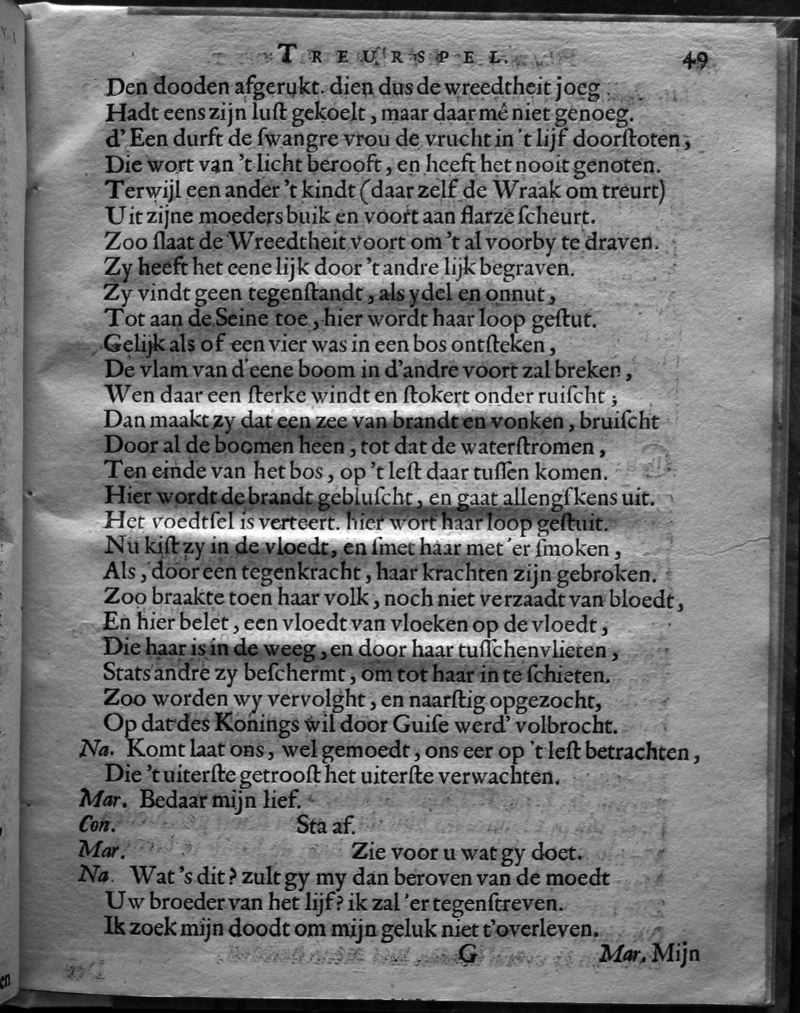 TREURSPEL. 49
Den dooden afgerukt. dien dus de wreedtheit joeg
Hadt eens zijn luſt gekoelt, maar daar mê niet genoeg.
d'Een durft de ſwangre vrou de vrucht in 't lijf doorſtoten,
Die wort van 't licht berooft, en heeft het nooit genoten.
Terwijl een ander 't kindt (daar zelf de Wraak om treurt)
Uit zijne moeders buik en voort aan flarze ſcheurt.
Zoo ſlaat de Wreedtheit voort om 't al voorby te draven.
Zy heeft het eene lijk door 't andre lijk begraven.
Zy vindt geen tegenſtandt, als ydel en onnut,
Tot aan de Seine toe, hier wordt haar loop geſtut.
Gelijk als of een vier was in een bos ontſteken,
De vlam van d'eene boom in d'andre voort zal breken,
Wen daar een ſterke windt en ſtokert onder ruiſcht;
Dan maakt zy dat een zee van brandt en vonken, bruiſcht
Door al de boomen heen, tot dat de waterſtromen,
Ten einde van het bos, op 't leſt daar tuſſen komen.
Hier wordt de brandt gebluſcht, en gaat allengſkens uit.
Het voedtſel is verteert. hier wort haar loop geſtuit.
Nu kiſt zy in de vloedt, en ſmet haar met 'er ſmoken,
Als, door een tegenkracht, haar krachten zijn gebroken.
Zoo braakte toen haar volk, noch niet verzaadt van bloedt,
En hier belet, een vloedt van vloeken op de vloedt,
Die haar is in de weeg, en door haar tuſſchenvlieten,
Stats andre zy beſchermt, om tot haar in te ſchieten.
Zoo worden wy vervolght, en naarſtig opgezocht,
Op dat des Konings wil door Guiſe werd' volbrocht.
Na. Komt laat ons, wel gemoedt, ons eer op 't leſt betrachten,
Die 't uiterſte getrooſt het uiterſte verwachten.
Mar. Bedaar mijn lief.
Con. Sta af.
Mar. Zie voor u wat gy doet.
Na. Wat 's dit? zult gy my dan beroven van de moedt
Uw broeder van het lijf? ik zal 'er tegenſtreven.
Ik zoek mijn doodt om mijn geluk niet t'overleven.
G Mar. Mijn